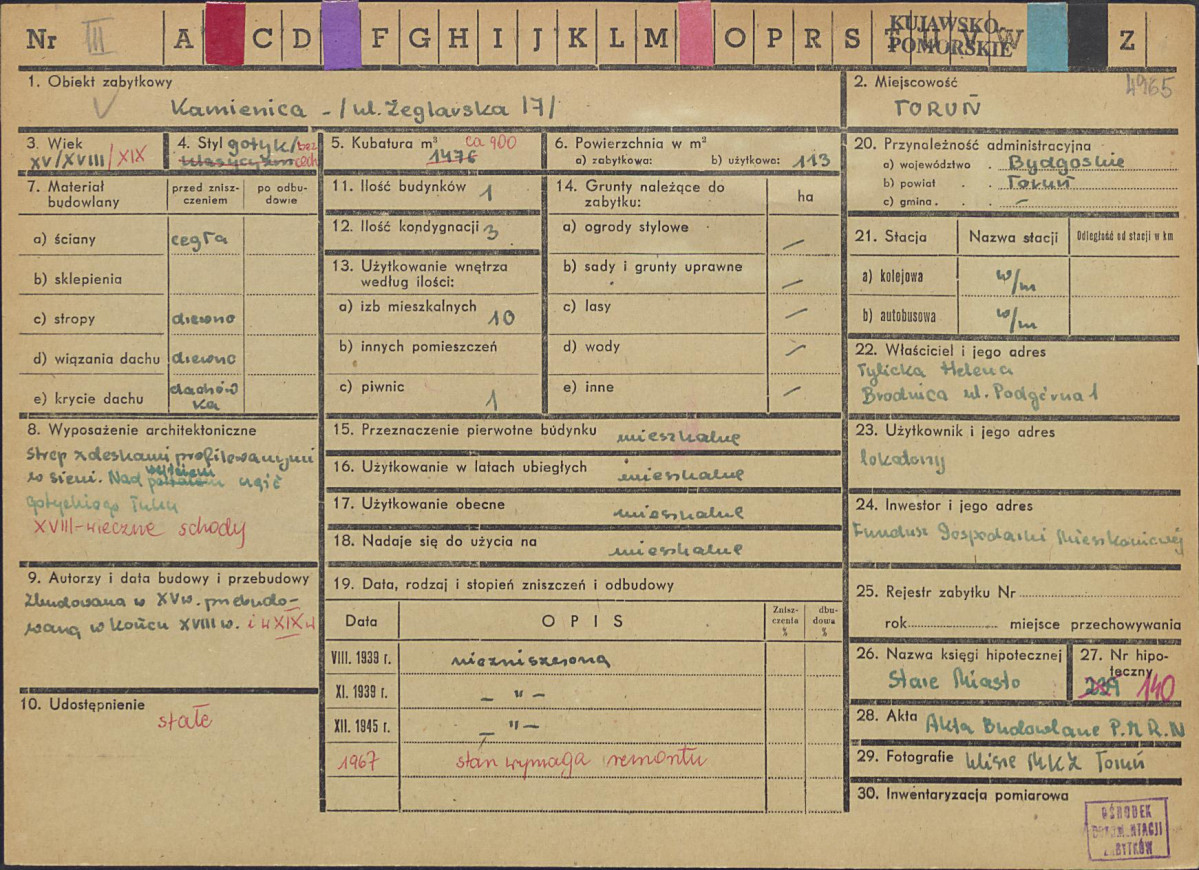 Nr III A C D F G H I J K L M O P R S T U V W Z
KUJAWSKO-
POMORSKIE
1. Obiekt zabytkowy
Kamienica - /ul. Żeglarska 17/
2. Miejscowość
4965
TORUŃ
3. Wiek
XV/XVIII/XIX
4. Styl gotyk/bez
klasycyzm cech
5. Kubatura m³ ca 900
1476
6. Powierzchnia w m²
a) zabytkowa: b) użytkowa: 113
20. Przynależność administracyjna
a) województwo . Bydgoskie
b) powiat . . Toruń
c) gmina . . . –
7. Materiał
budowlany
przed znisz-
czeniem
po odbu-
dowie
a) ściany cegła
b) sklepienia
c) stropy drewno
d) wiązania dachu drewno
e) krycie dachu dachów
ka
11. Ilość budynków 1
12. Ilość kondygnacji 3
13. Użytkowanie wnętrza
według ilości:
a) izb mieszkalnych 10
b) innych pomieszczeń
c) piwnic 1
14. Grunty należące do
zabytku:
ha
a) ogrody stylowe –
b) sady i grunty uprawne –
c) lasy –
d) wody –
e) inne –
21. Stacja Nazwa stacji Odległość od stacji w km
a) kolejowa w/m
b) autobusowa w/m
22. Właściciel i jego adres
Tylicka Helena
Brodnica ul. Podgórna 1
8. Wyposażenie architektoniczne
Strop z deskami profilowanymi
w sieni. Nad wejściem
portalem nić
gotyckiego łuku
XVIII-wieczne schody
15. Przeznaczenie pierwotne budynku mieszkalne
16. Użytkowanie w latach ubiegłych mieszkalne
17. Użytkowanie obecne mieszkalne
18. Nadaje się do użycia na mieszkalne
23. Użytkownik i jego adres
lokatorzy
24. Inwestor i jego adres
Fundusz Gospodarki Mieszkaniowej
9. Autorzy i data budowy i przebudowy
Zbudowana w XV w. przebudo-
waną w końcu XVIII w. i w XIX w
10. Udostępnienie
stałe
19. Data, rodzaj i stopień zniszczeń i odbudowy
Data OPIS
Znisz-
czenia
%
dbu-
dowa
%
VIII. 1939 r. niezniszczona
XI. 1939 r. – " –
XII. 1945 r. – " –
1967 stan wymaga remontu
25. Rejestr zabytku Nr
rok miejsce przechowywania
26. Nazwa księgi hipotecznej
Stare Miasto
27. Nr hipo-
teczny
140
28. Akta Akta Budowlane P.M.R.N
29. Fotografie klisze MKZ Toruń
30. Inwentaryzacja pomiarowa
OŚRODEK
DOKUMENTACJI
ZABYTKÓW